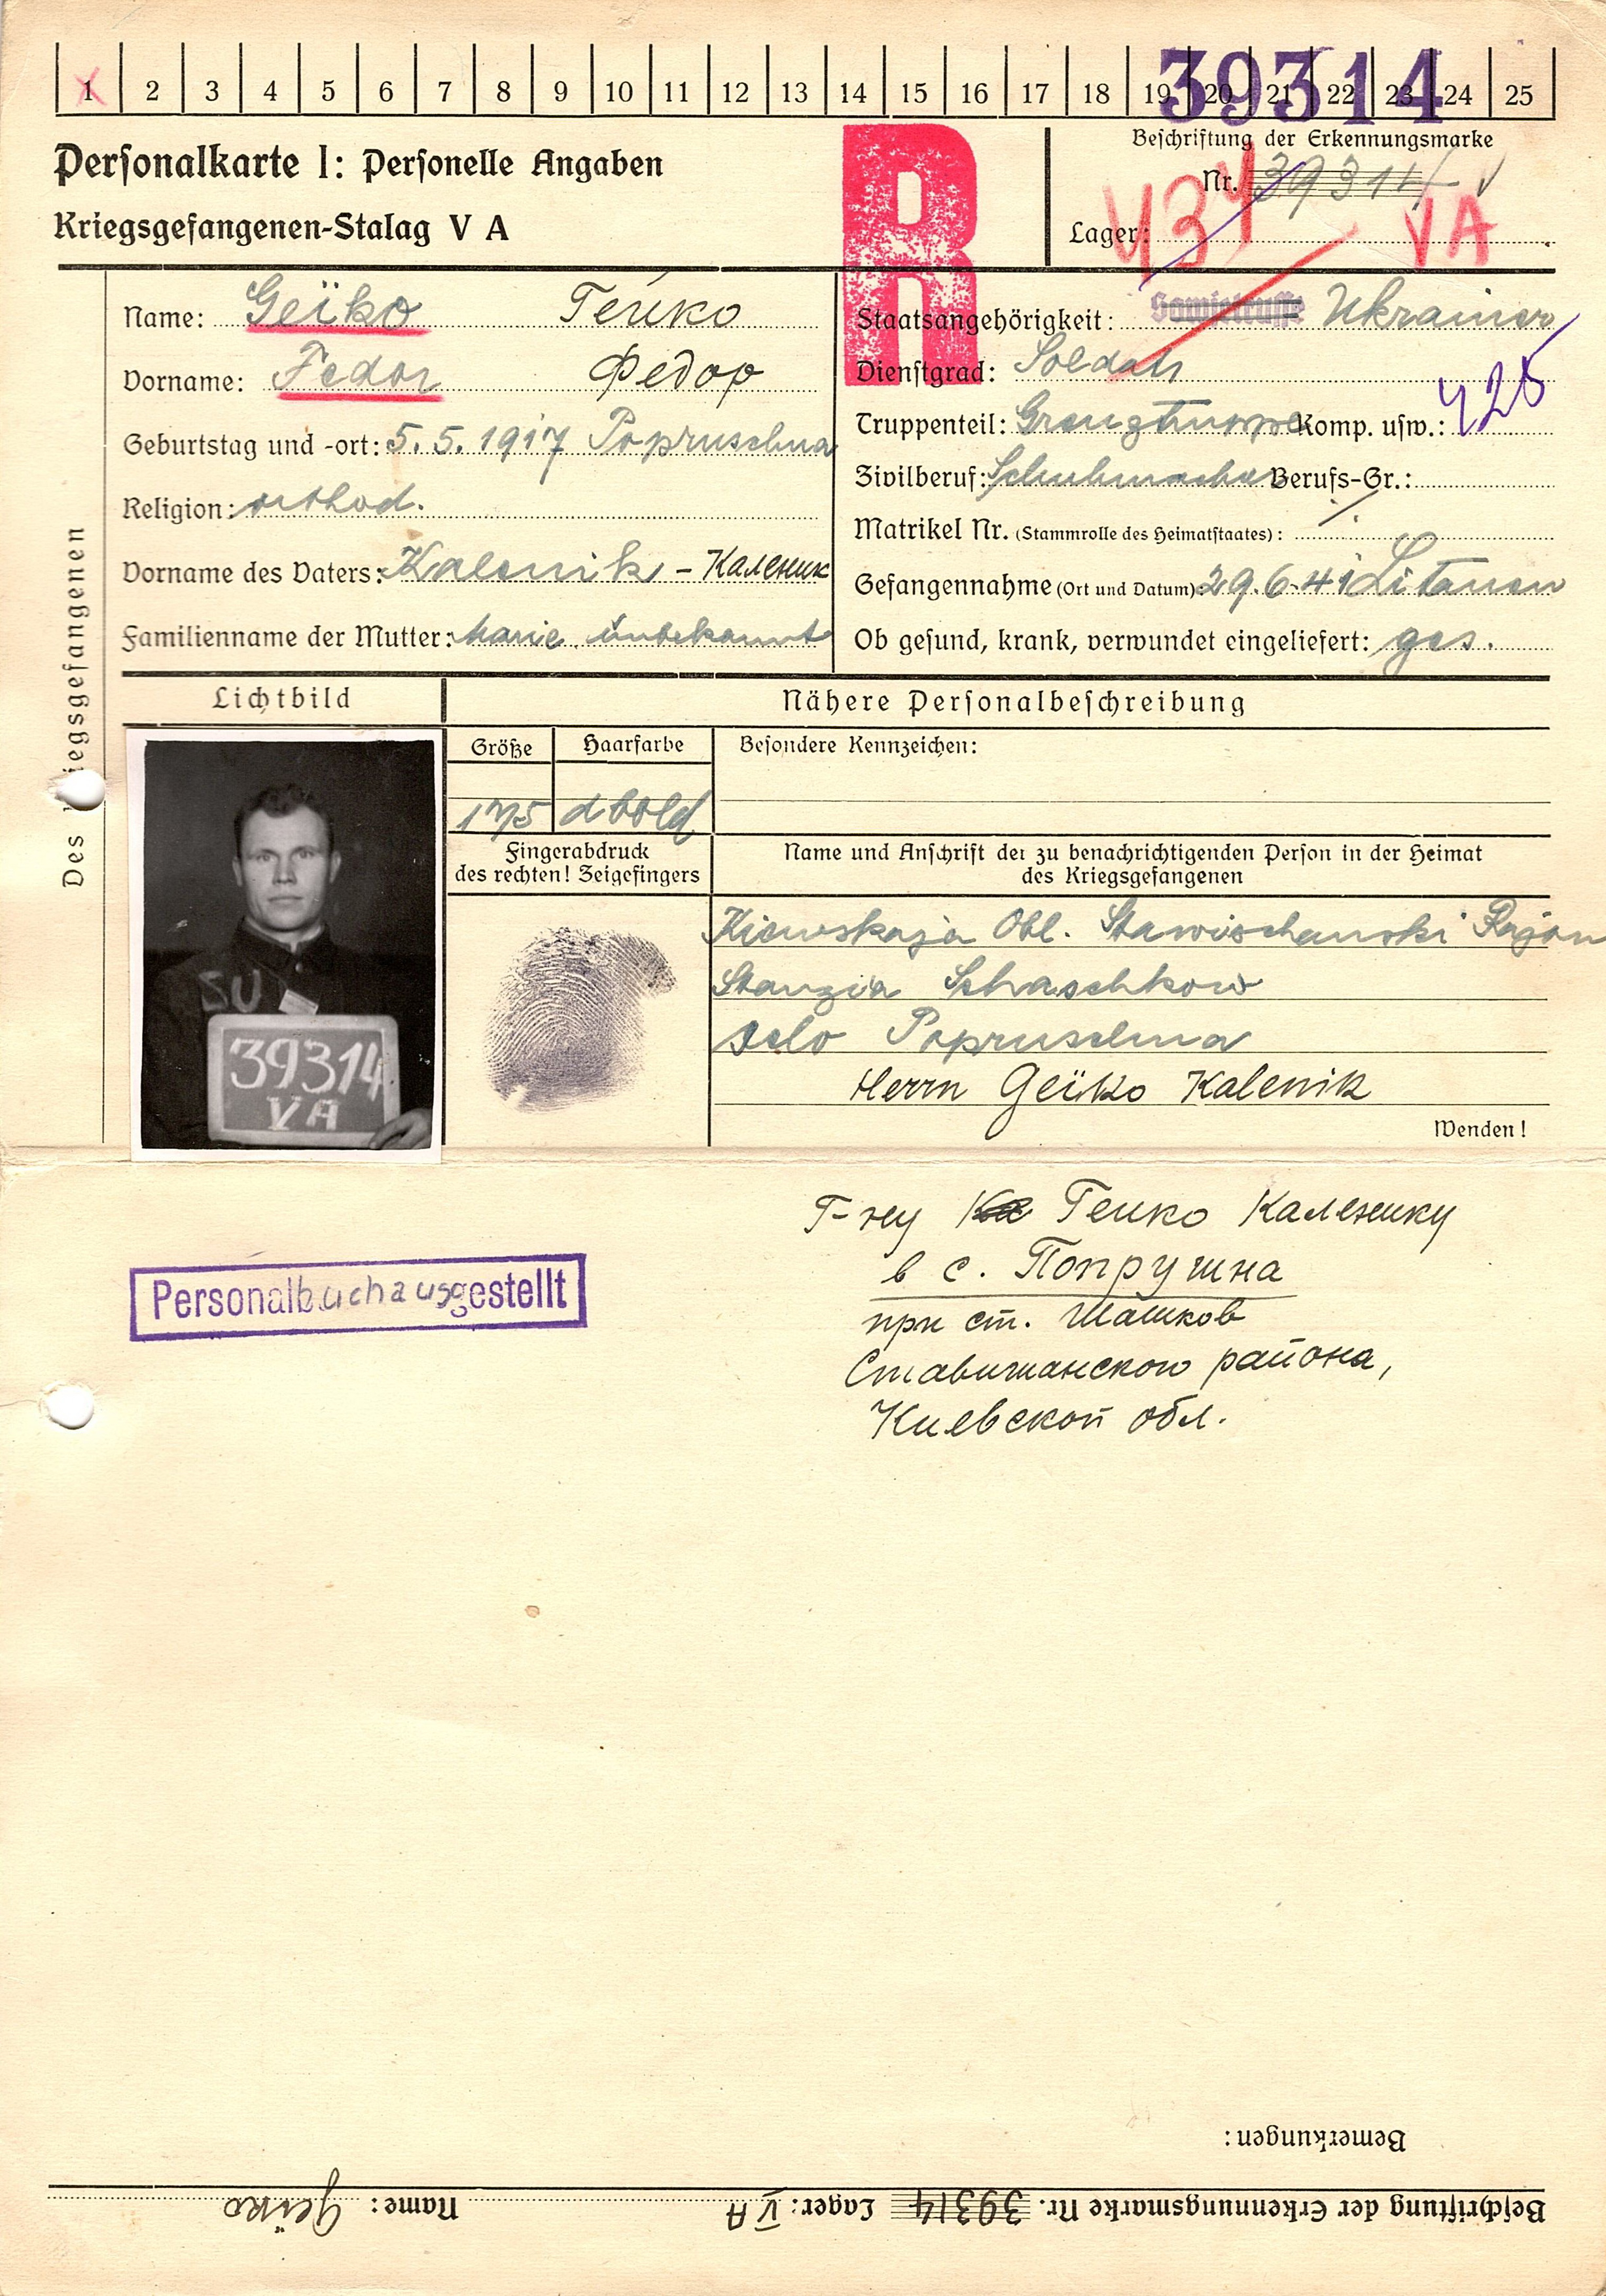 1 2 3 4 5 6 7 8 9 10 11 12 13 14 15 16 17 18 19 20 21 22 23 24 25
39314
Personalkarte I: Personelle Angaben
Kriegsgefangenen-Stalag V A
R
Beschriftung der Erkennungsmarke
Nr. 39314
Lager: V A
Des Kriegsgefangenen
Name: Geïko Гейко
Vorname: Fedor Федор
Geburtstag und -ort: 5.5.1917 Popruschna
Religion: orthod.
Vorname des Vaters: Kalenik - Каленик
Familienname der Mutter: Marie unbekannt
Staatsangehörigkeit: Sowjetrusse Ukrainer
Dienstgrad: Soldat
Truppenteil: Grenztruppe Komp. usw.:
Zivilberuf: Schuhmacher Berufs-Gr.:
Matrikel Nr. (Stammrolle des Heimatstaates):
Gefangennahme (Ort und Datum): 29.6.41 Litauen
Ob gesund, krank, verwundet eingeliefert: ges.
Lichtbild
Nähere Personalbeschreibung
Größe Haarfarbe Besondere Kennzeichen:
175
Fingerabdruck
des rechten! Zeigefingers
Name und Anschrift der zu benachrichtigenden Person in der Heimat
des Kriegsgefangenen
Kiewskaja Obl. Stawischanski Rajon
Stanzia Schaschkow
selo Popruschna
Herrn Geïko Kalenik
Wenden!
SU
39314
VA
Г-ну Гейко Каленику
в с. Попрушна
при ст. Шашков
Ставищанского района,
Киевской обл.
Personalbuch ausgestellt
Bemerkungen:
Beschriftung der Erkennungsmarke Nr. 39314 Lager: V A Name: Geïko